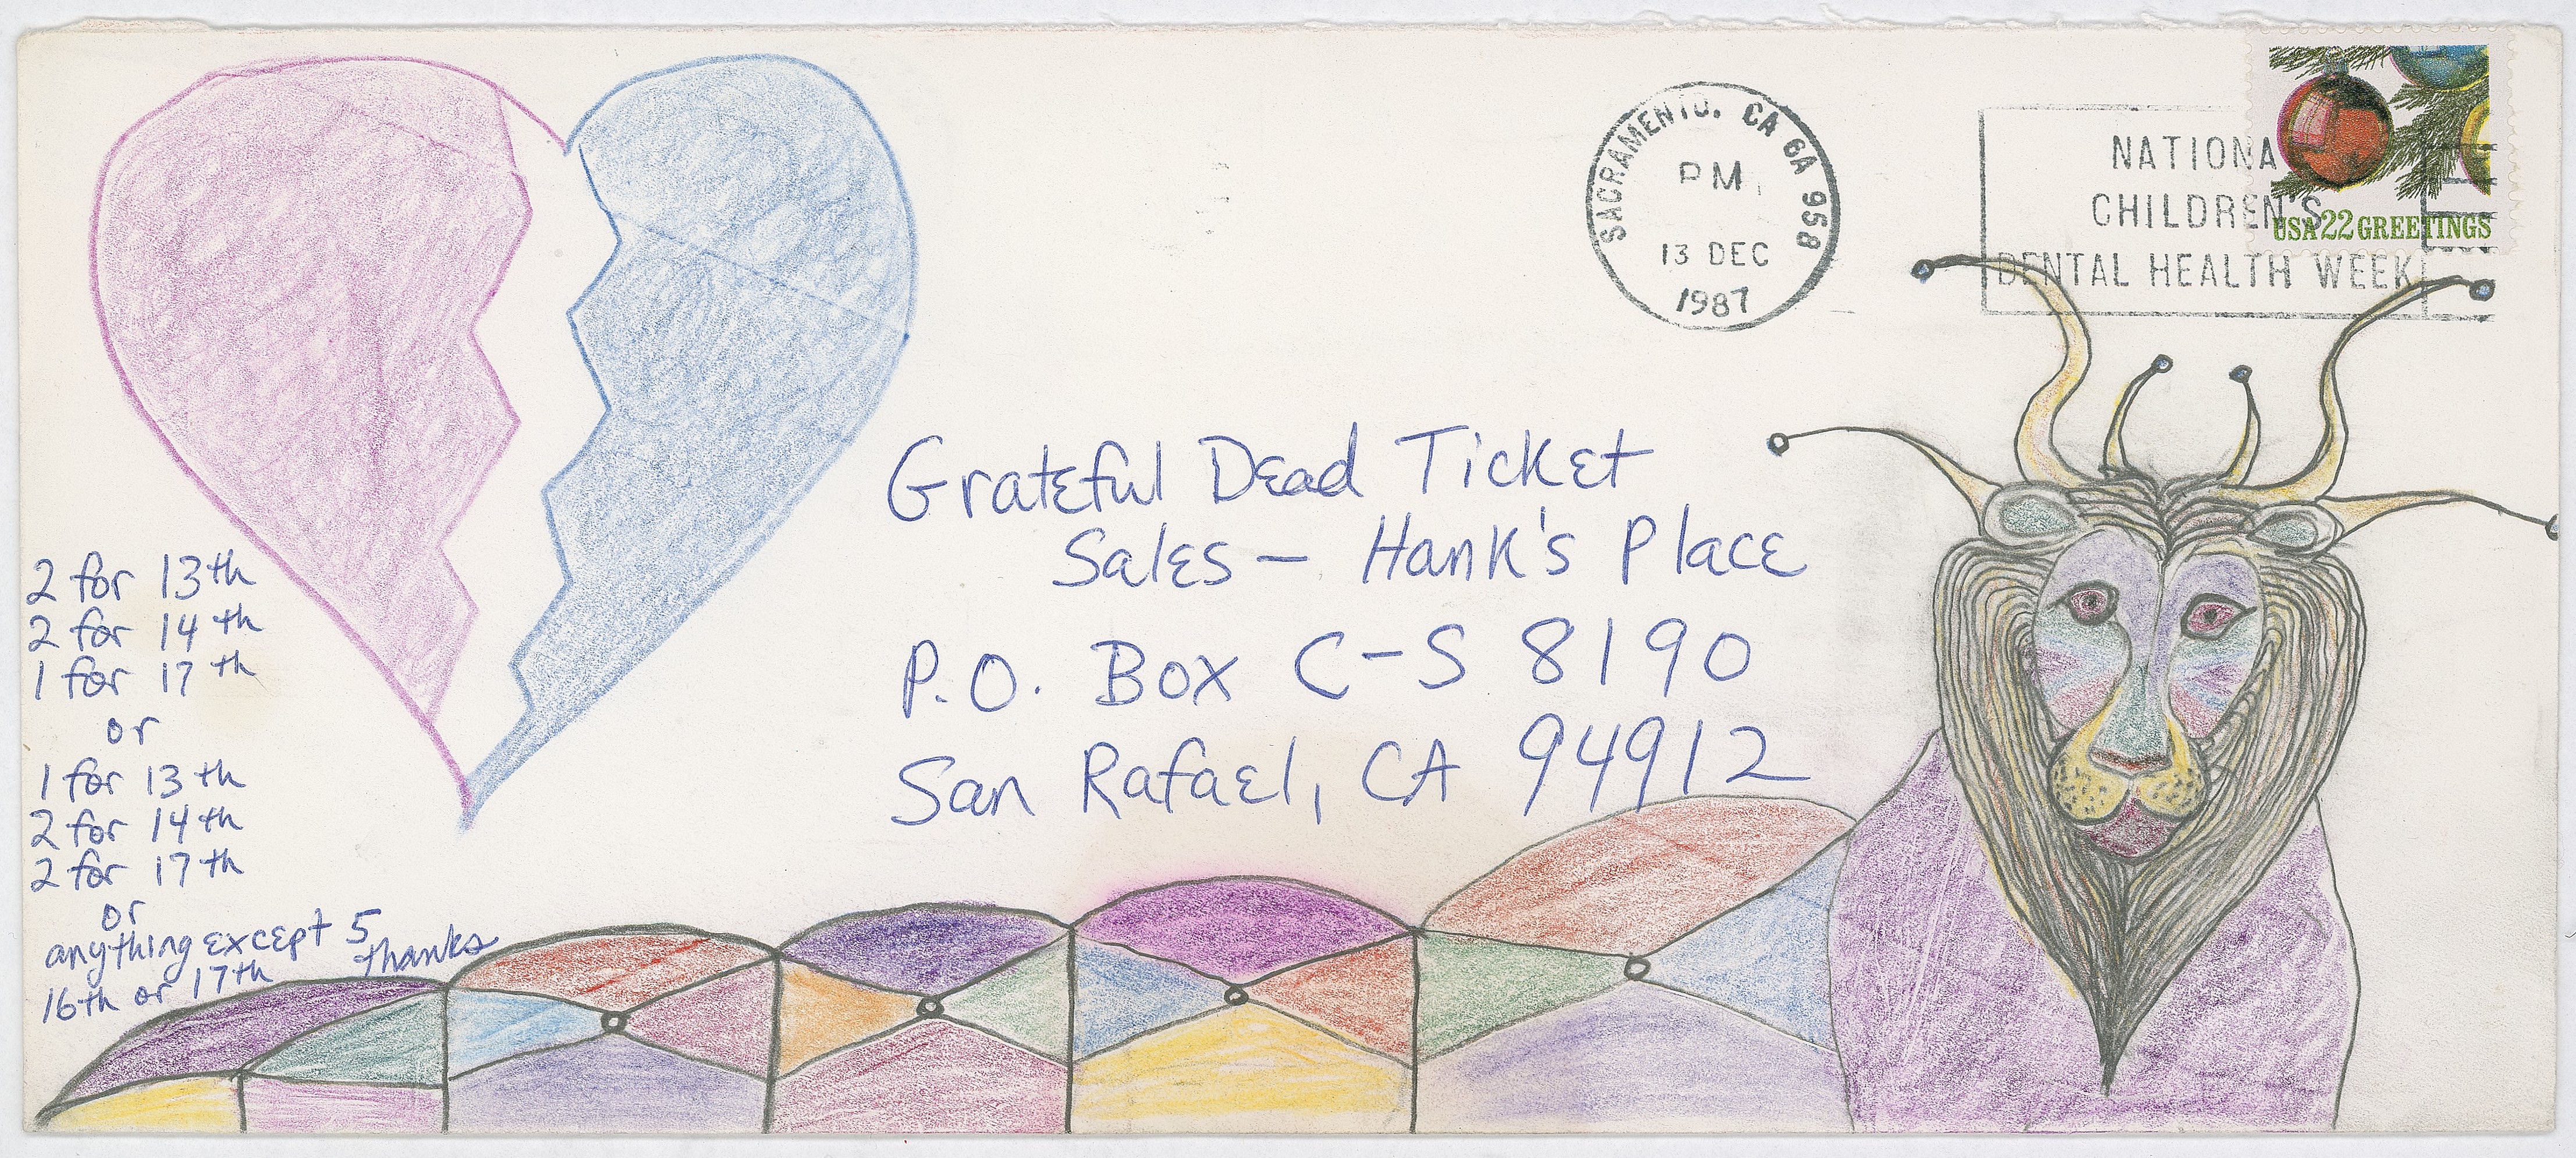 SACRAMENTO, CA GA 958
PM
13 DEC
1987
NATIONA
CHILDREN'S
DENTAL HEALTH WEEK
USA 22 GREETINGS
Grateful Dead Ticket
Sales - Hank's Place
P.O. Box C-S 8190
San Rafael, CA 94912
2 for 13th
2 for 14th
1 for 17th
or
1 for 13th
2 for 14th
2 for 17th
or
anything except 5
16th or 17th thanks